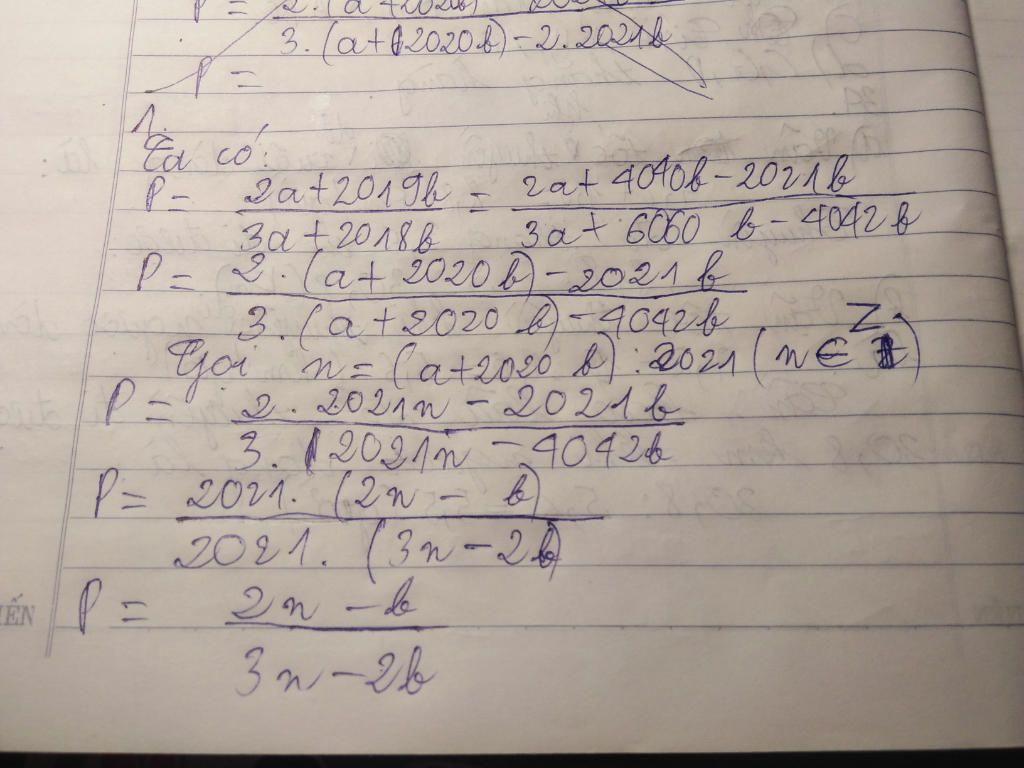 P = 2.(a+2020b)
3.(a+2020b)-2.2021b
P =
1.
Ta có:
P = 2a+2019b / 3a+2018b = 2a+4040b-2021b / 3a+6060b-4042b
P = 2.(a+2020b)-2021b / 3.(a+2020b)-4042b
Gọi n=(a+2020b):2021(n∈Z)
P = 2.2021n-2021b / 3.2021n-4042b
P = 2021.(2n-b) / 2021.(3n-2b)
P = 2n-b / 3n-2b
IẾN